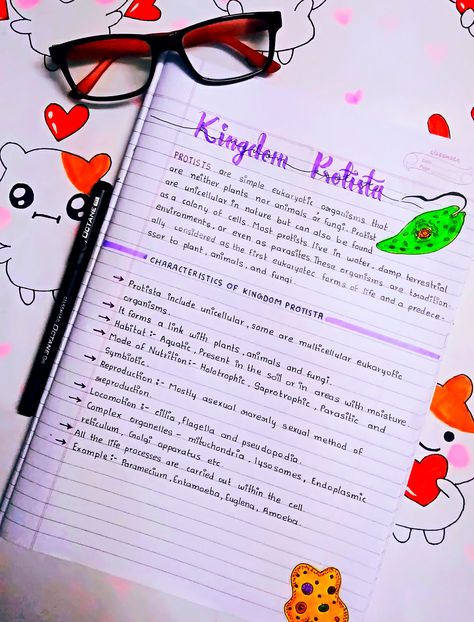 Kingdom Protista
classmate
Date
Page
PROTISTS are simple eukaryotic organisms that
are neither plants nor animals or fungi. Protist
are unicellular in nature but can also be found
as a colony of cells. Most protists live in water, damp terrestrial
environments, or even as parasites. These organisms are tradition-
ally considered as the first eukaryotic forms of life and a predece-
ssor to plant, animals, and fungi.
CHARACTERISTICS OF KINGDOM PROTISTA
→ Protista include unicellular, some are multicellular eukaryotic
organisms.
→ It forms a link with plants, animals and fungi.
→ Habitat :- Aquatic, Present in the soil or in areas with moisture.
→ Mode of Nutrition:- Holotrophic, Saprotrophic, Parasitic and
Symbiotic.
→ Reproduction :- Mostly asexual rarely sexual method of
reproduction.
→ Locomotion :- cillia, flagella and pseudopodia.
→ Complex organelles - mitochondria, lysosomes, Endoplasmic
reticulum, Golgi apparatus etc.
→ All the life processes are carried out within the cell.
→ Example :- Paramecium, Entamoeba, Euglena, Amoeba
OCTANE